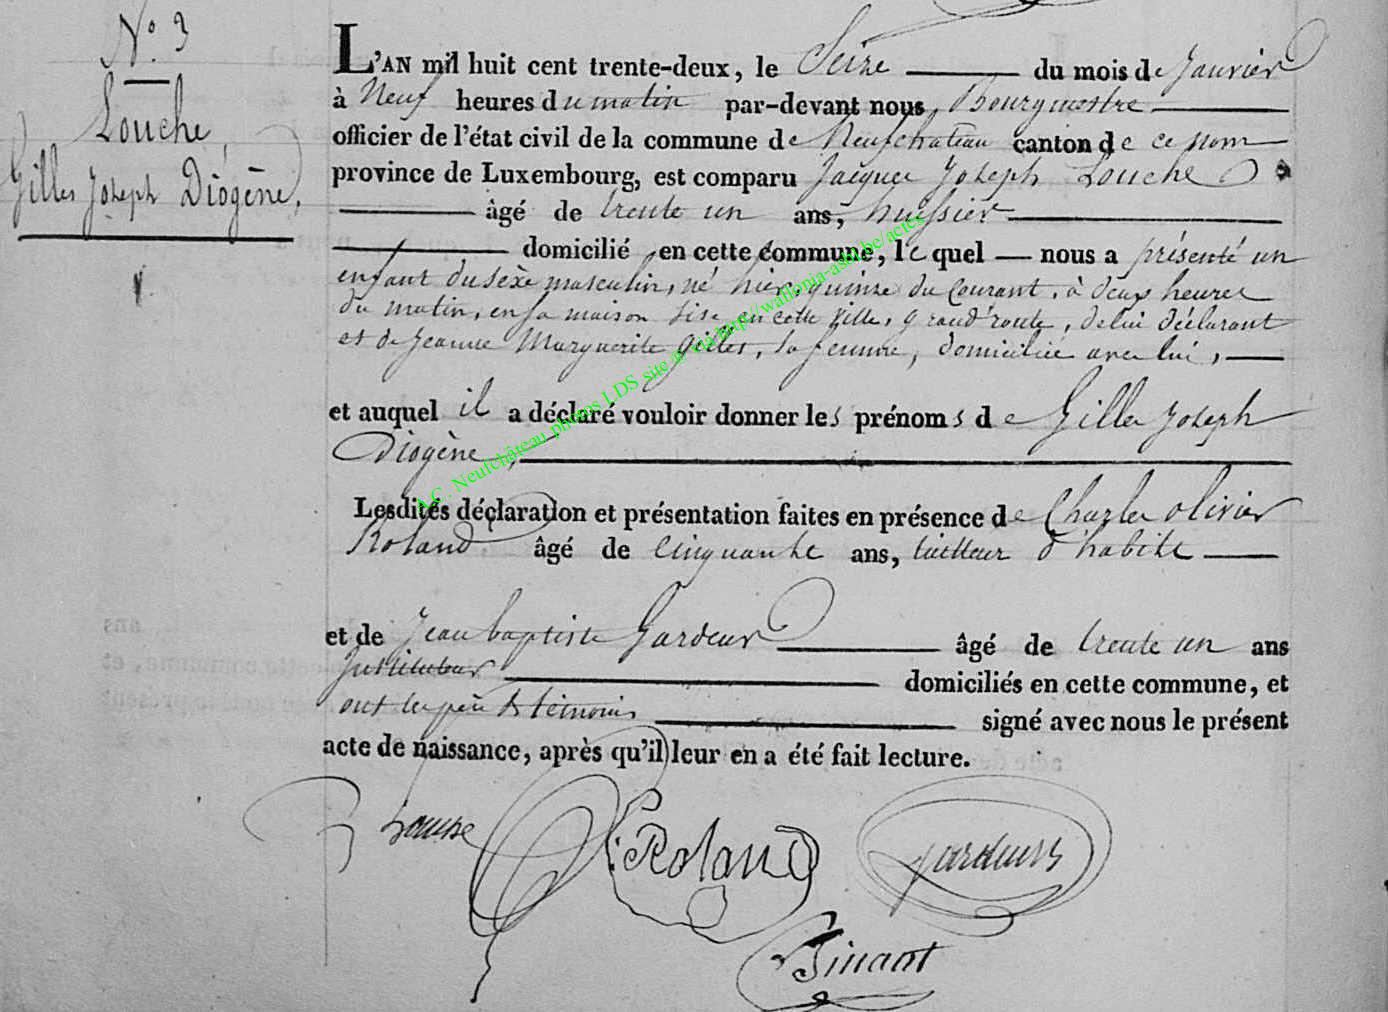 N.° 3
Louche,
Gilles Joseph Diogène,
L'AN mil huit cent trente-deux, le Seize du mois de Janvier
à Neuf heures du matin par-devant nous, Bourgmestre
officier de l'état civil de la commune de Neufchateau canton de ce nom
province de Luxembourg, est comparu Jacques Joseph Louche
âgé de trente un ans, huissier
domicilié en cette commune, le quel nous a présenté un
enfant du sexe masculin, né hier, quinze du Courant, à deux heures
du matin, en sa maison sise en cette ville, grand'route, de lui déclarant
et de Jeanne Marguerite Gilles, sa femme, domiciliée avec lui,
et auquel il a déclaré vouloir donner les prénoms de Gilles Joseph
Diogène,
Lesdites déclaration et présentation faites en présence de Charles olivier
Roland, âgé de cinquante ans, tailleur d'habits
et de Jean baptiste Gardeur âgé de trente un ans
Instituteur domiciliés en cette commune, et
ont les père & témoins signé avec nous le présent
acte de naissance, après qu'il leur en a été fait lecture.
Louche Roland Gardeur
Binant
A.C. Neufchâteau photos LDS site via http://wallonia-asbl.be/actes